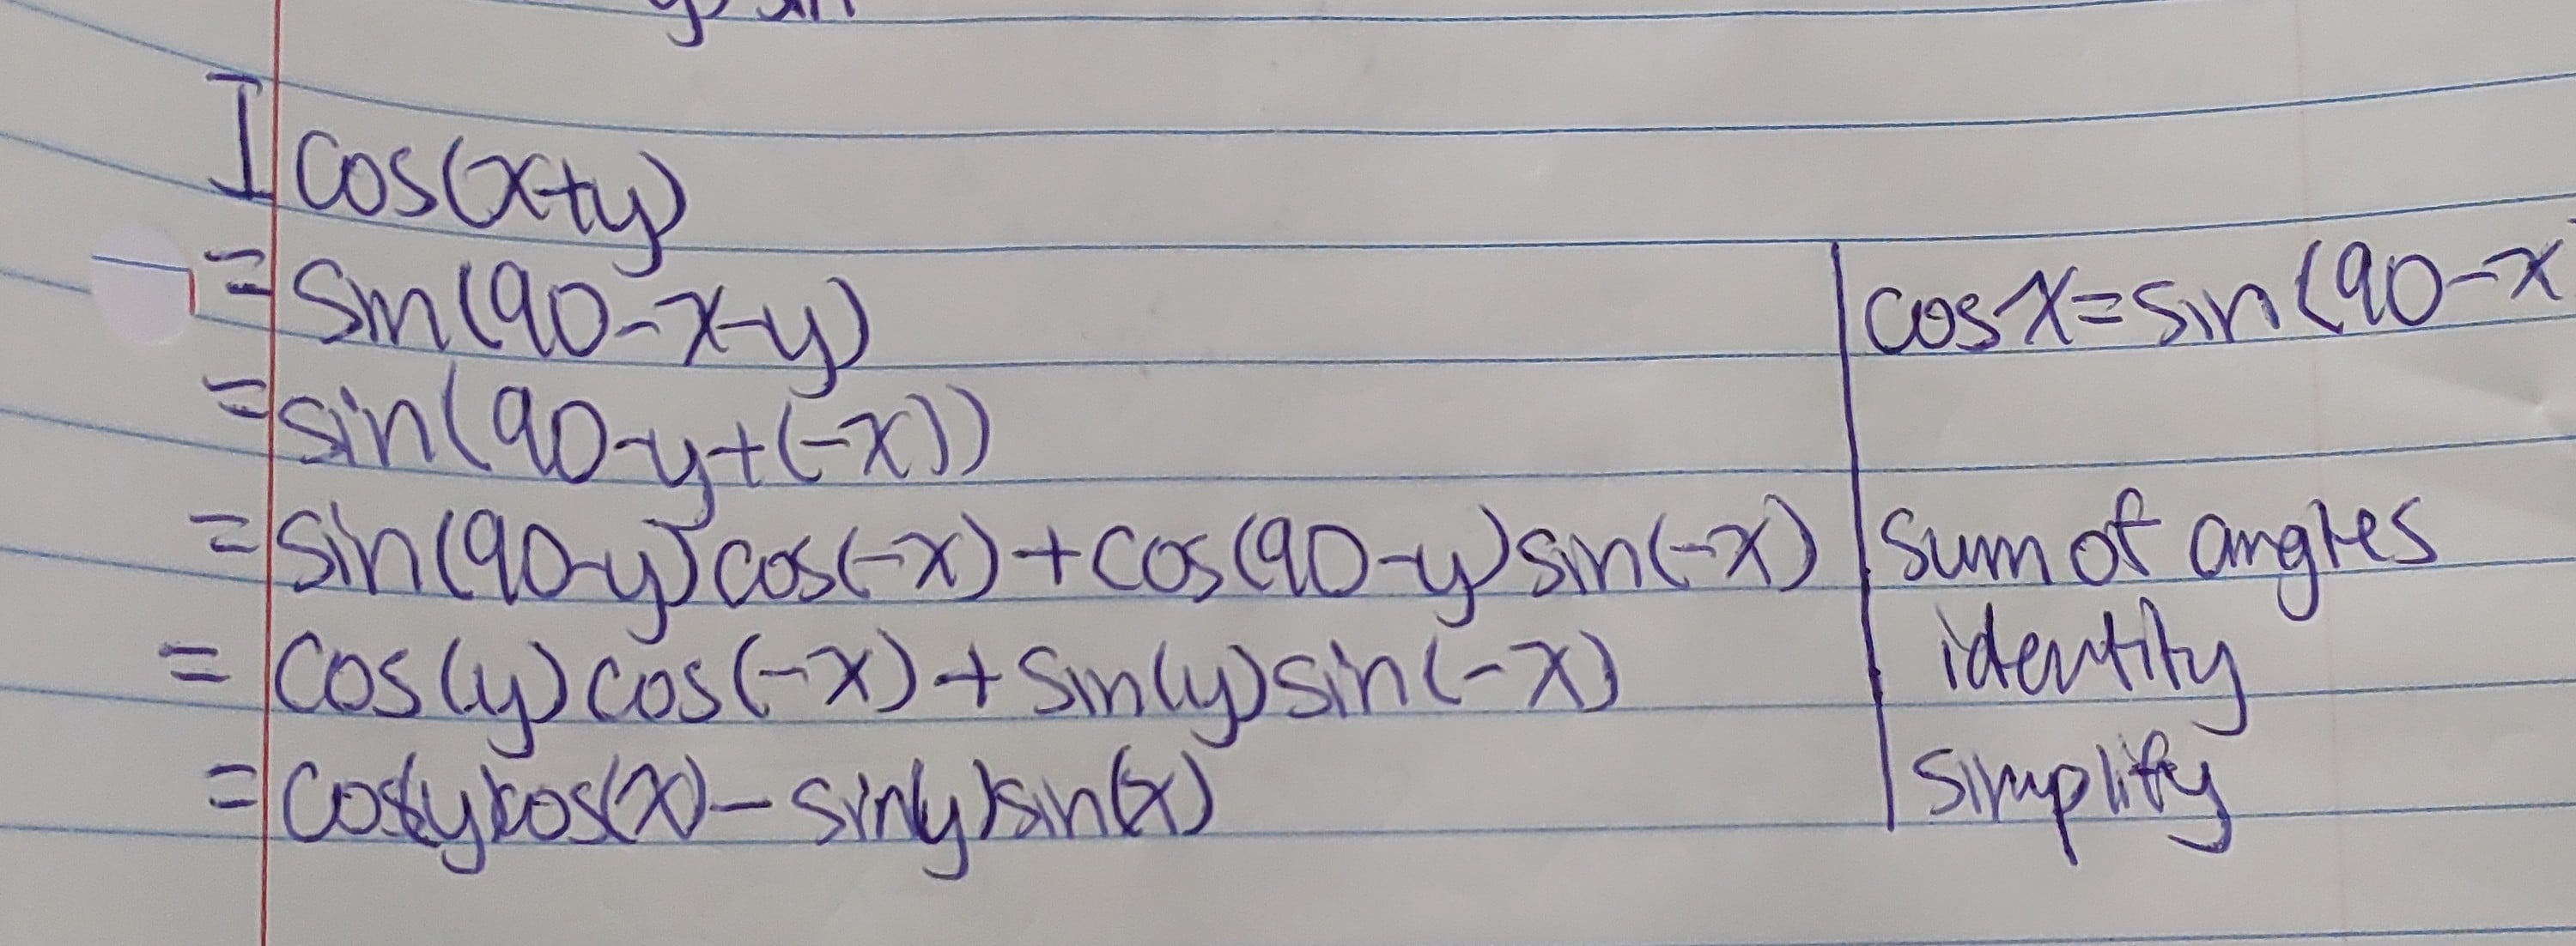 I cos(x+y)
= sin(90-x-y)
cos x = sin(90-x
= sin(90-y+(-x))
= sin(90-y)cos(-x)+cos(90-y)sin(-x)
sum of angles
identity
= cos(y)cos(-x)+sin(y)sin(-x)
= cos(y)cos(x)-sin(y)sin(x)
simplify